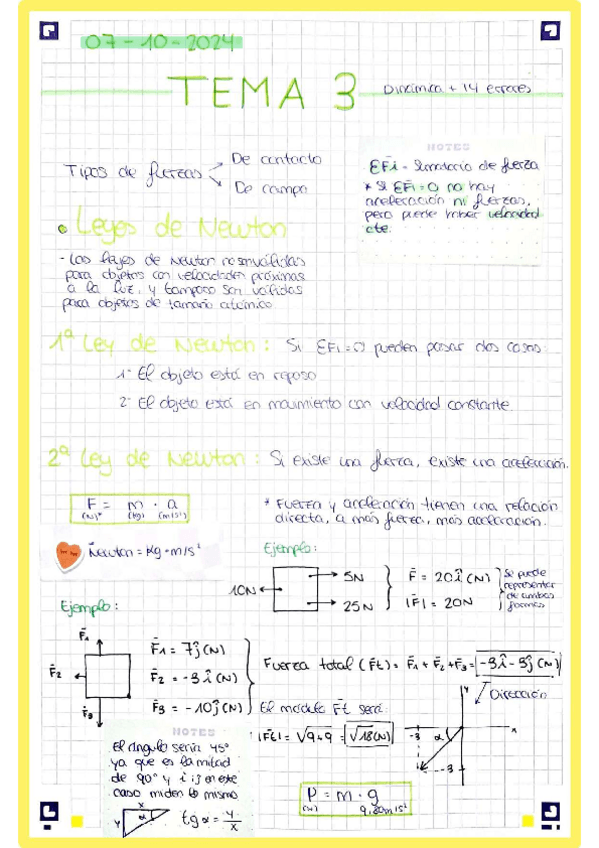 07-10-2024
TEMA 3
Dinámica + 14 errores
Tipos de fuerzas
De contacto
De campo
NOTES
ΣF̄i - Sumatorio de fuerza
* Si ΣF̄i=0 no hay
aceleración ni fuerzas,
pero puede haber velocidad
cte.
• Leyes de Newton
- Las leyes de Newton no son válidas
para objetos con velocidades próximas
a la luz, y tampoco son válidas
para objetos de tamaño atómico
1ª Ley de Newton: Si ΣFi=0 pueden pasar dos cosas:
1- El objeto está en reposo
2- El objeto está en movimiento con velocidad constante.
2ª Ley de Newton: Si existe una fuerza, existe una aceleración.
F = m · a
(N) (kg) (m/s²)
* Fuerza y aceleración tienen una relación
directa, a más fuerza, más aceleración.
Newton = kg · m/s²
Ejemplo:
10N
5N
25N
F̄ = 20î (N)
|F̄| = 20N
Se puede
representar
de ambas
formas
Ejemplo:
F̄1
F̄2
F̄3
F̄1 = 7ĵ (N)
F̄2 = -3î (N)
F̄3 = -10ĵ (N)
Fuerza total (F̄t) = F̄1 + F̄2 + F̄3 = -3î - 3ĵ (N)
El módulo F̄t será:
|F̄t| = √9+9 = √18 (N)
Dirección
y
x
-3
α
-3
NOTES
El ángulo sería 45°
ya que es la mitad
de 90° y î i ĵ en este
caso miden lo mismo
x
y
α
tg α = y/x
P = m · g
(N) 9,80m/s²